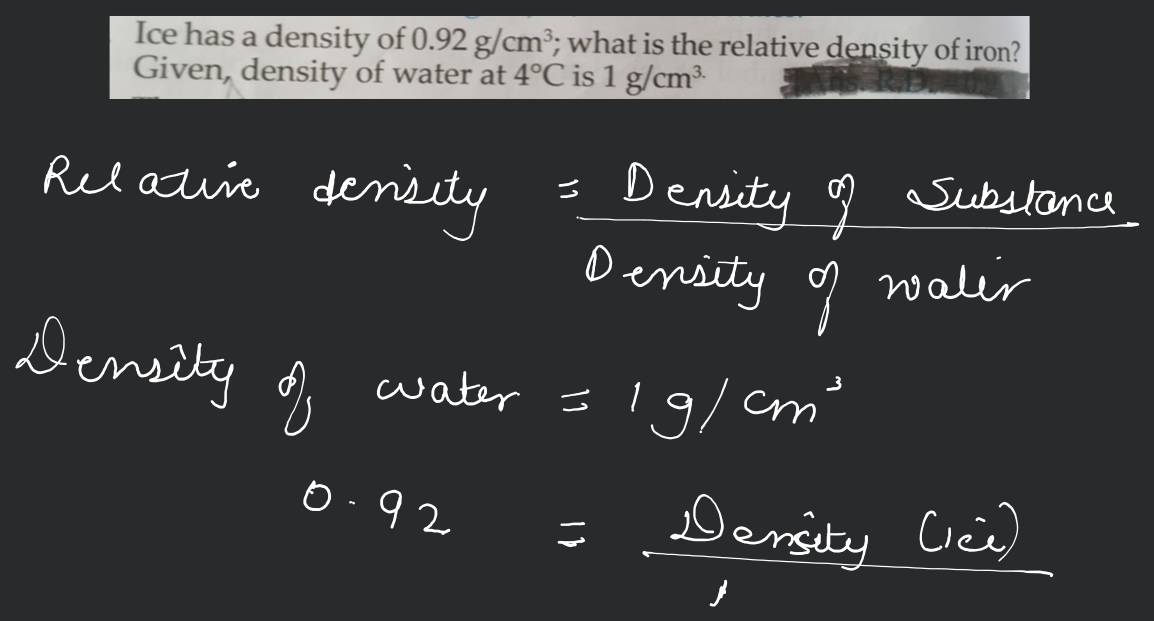 Ice has a density of 0.92 g/cm³; what is the relative density of iron?
Given, density of water at 4°C is 1 g/cm³.
Relative density = Density of Substance
Density of water
Density of water = 1 g/cm³
0.92 = Density (ice)
1